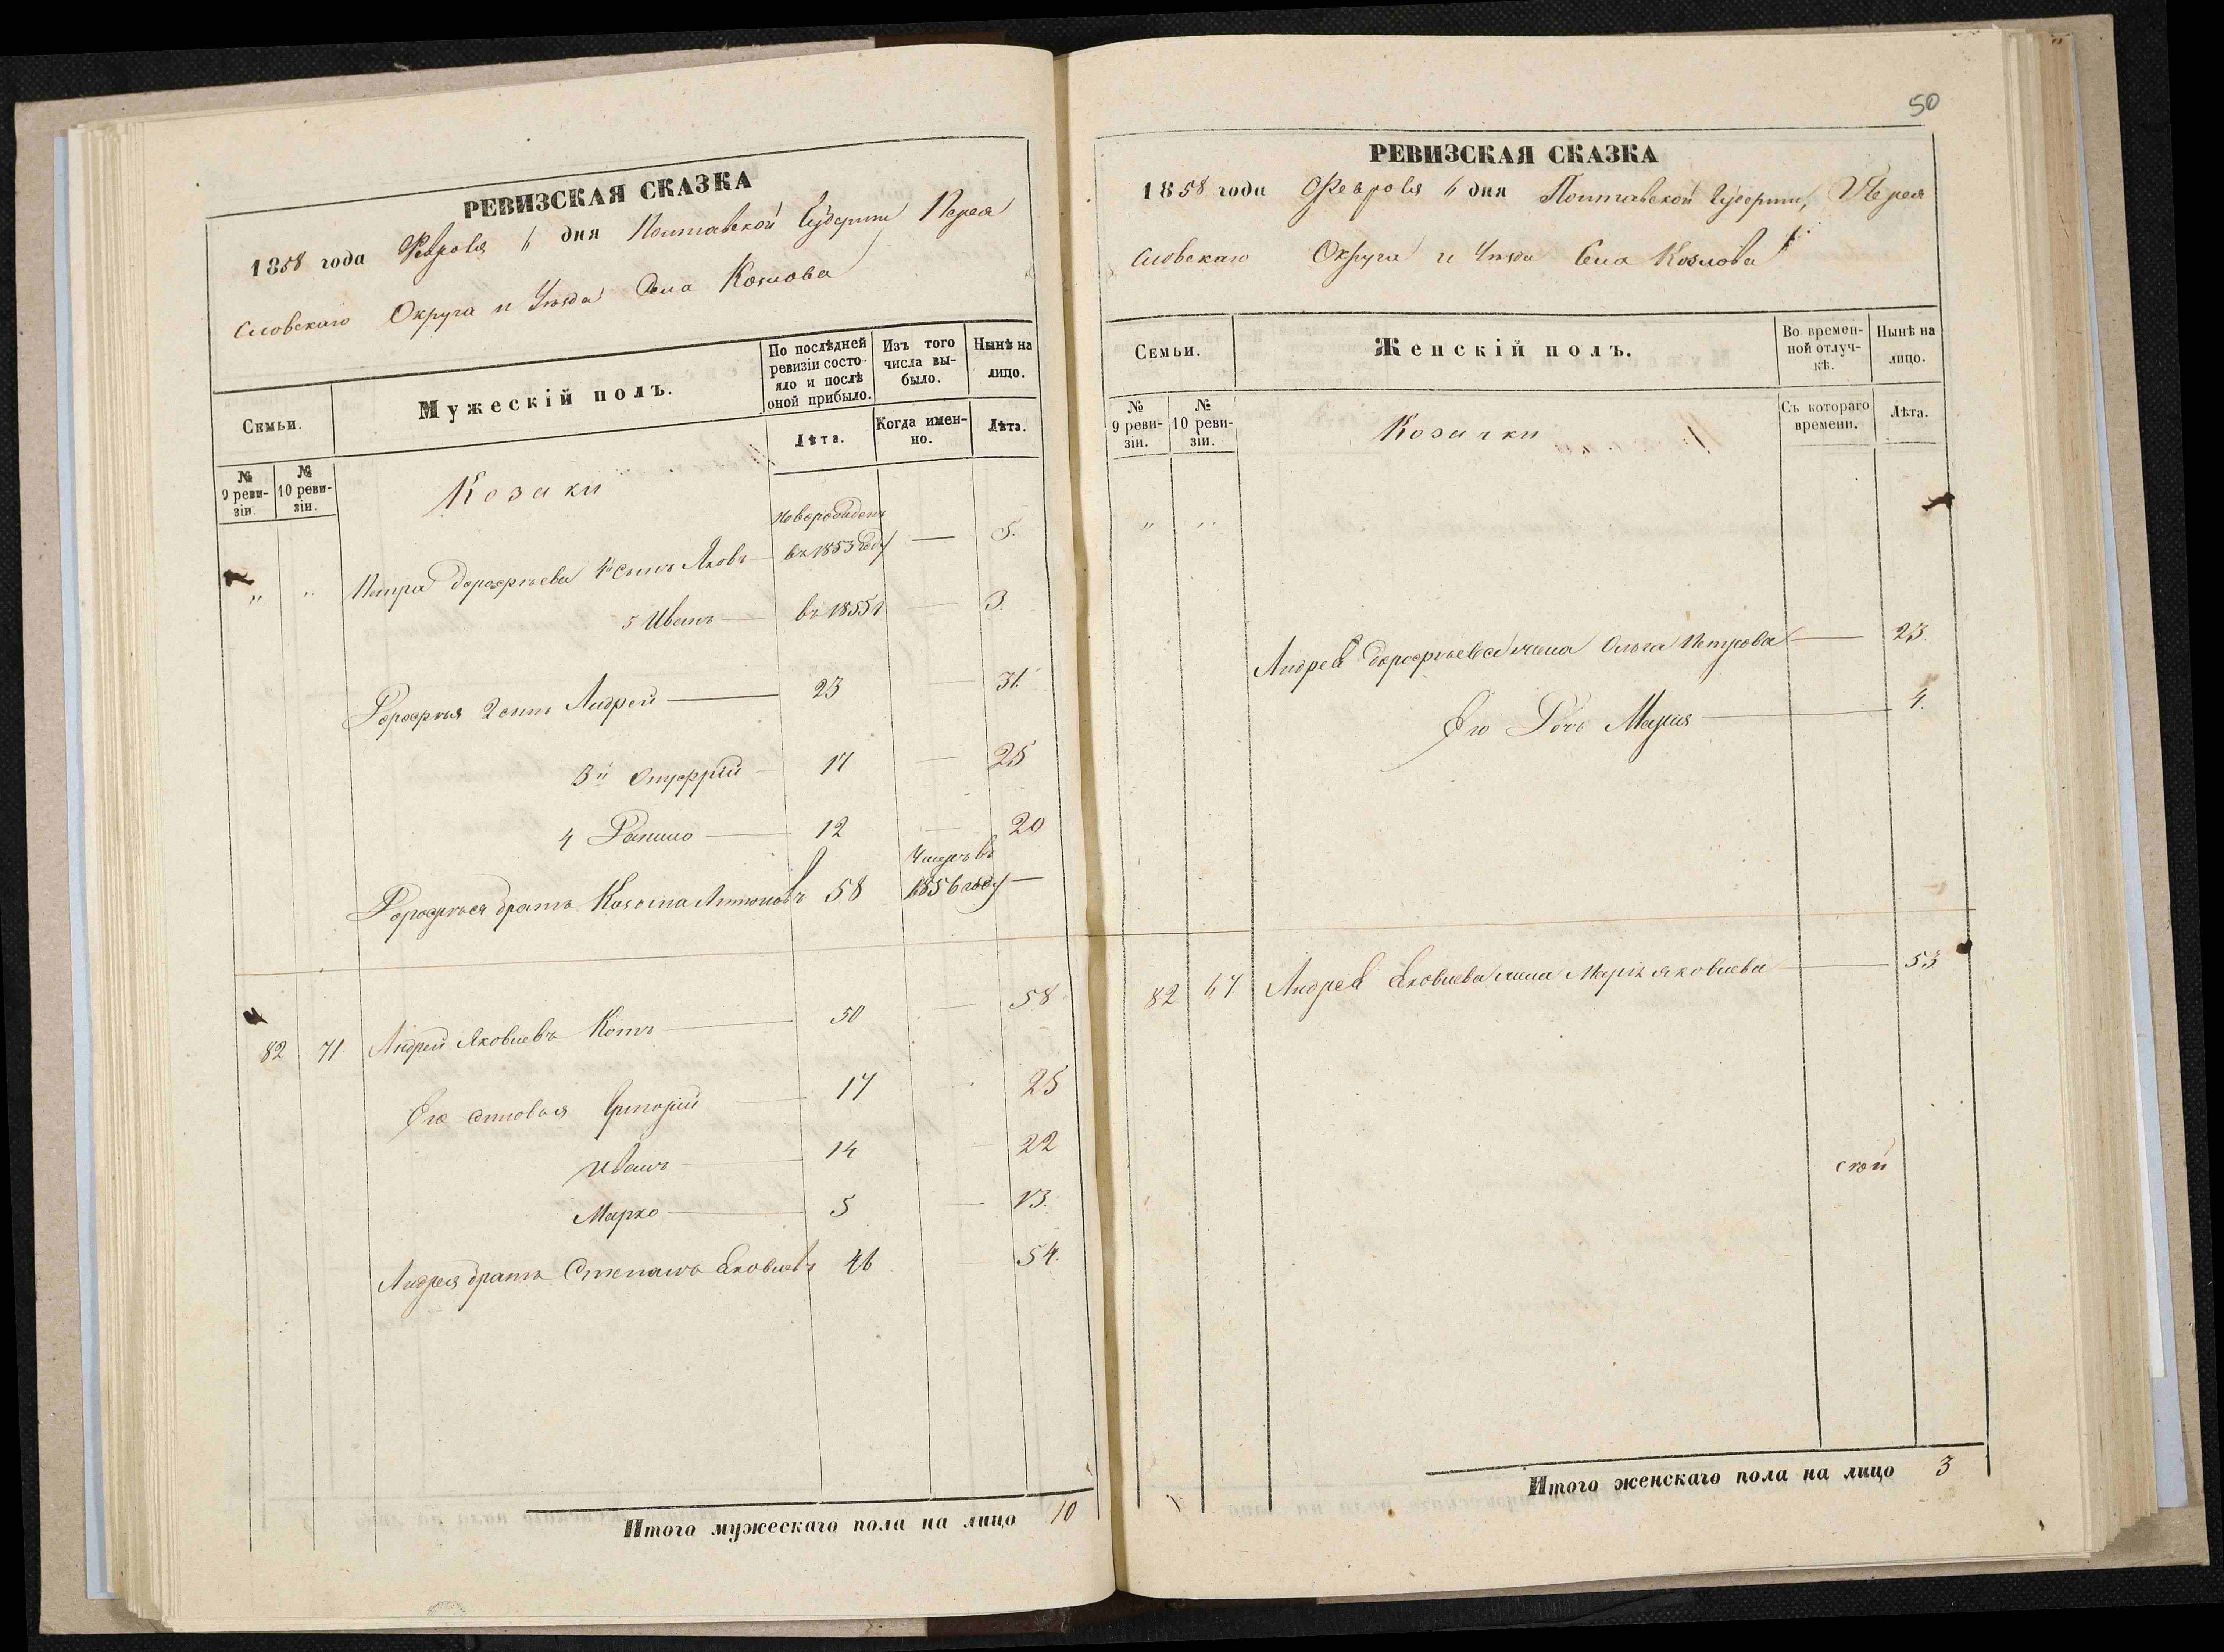 РЕВИЗСКАЯ СКАЗКА
1858 года Февраля 6 дня Полтавской Губернии Перея
славскаго Округа и Уезда Села Козлова
Семьи.
Мужескій полъ.
По послѣдней ревизіи состо-
яло и послѣ
оной прибыло.
Изъ того
числа вы-
было.
Нынѣ на
лицо.
Лѣта.
Когда имен-
но.
Лѣта.
№
9 реви-
зіи.
№
10 реви-
зіи.
Козаки
" " Петра Дорофѣева 4й сынъ Яковъ — новорожденъ въ 1853 году — 5.
5 Иванъ — въ 1855 — 3.
Дорофѣя 2 сынъ Андрей — 23 — 31.
3й Онуфрій — 17 — 25
4 Данило — 12 — 20
Дорофѣя братъ Козьма Антоновъ 58 Умеръ въ 1856 году —
82 71. Андрей Яковлевъ Котъ — 50 — 58
Его сыновья Григорій — 17 25
Иванъ — 14 — 22
Марко — 5 — 13.
Андрея братъ Степанъ Яковлевъ 46 — 54.
Итого мужескаго пола на лицо 10
50
РЕВИЗСКАЯ СКАЗКА
1858 года Февраля 6 дня Полтавской Губернии, Перея
славскаго Округа и Уезда Села Козлова
Семьи.
Женскій полъ.
Во времен-
ной отлуч-
кѣ.
Нынѣ на
лицо.
№
9 реви-
зіи.
№
10 реви-
зіи.
Козачки
Съ котораго
времени.
Лѣта.
" "
Андрея Дорофѣева жена Ольга Петрова — 23.
Его Дочь Марія — 4.
82 67 Андрея Яковлева жена Марія Яковлева — 53
Итого женскаго пола на лицо 3